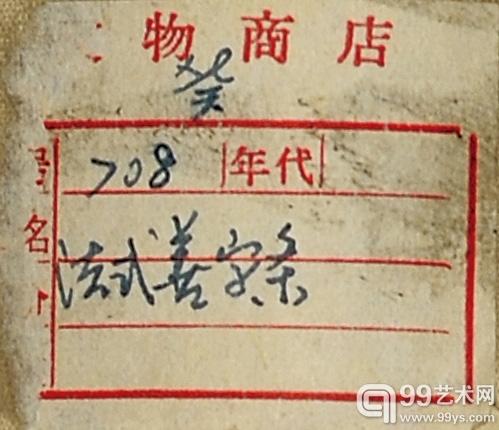 物商店
癸
号 708 年代
名 法式善字条
99艺术网
www.99ys.com